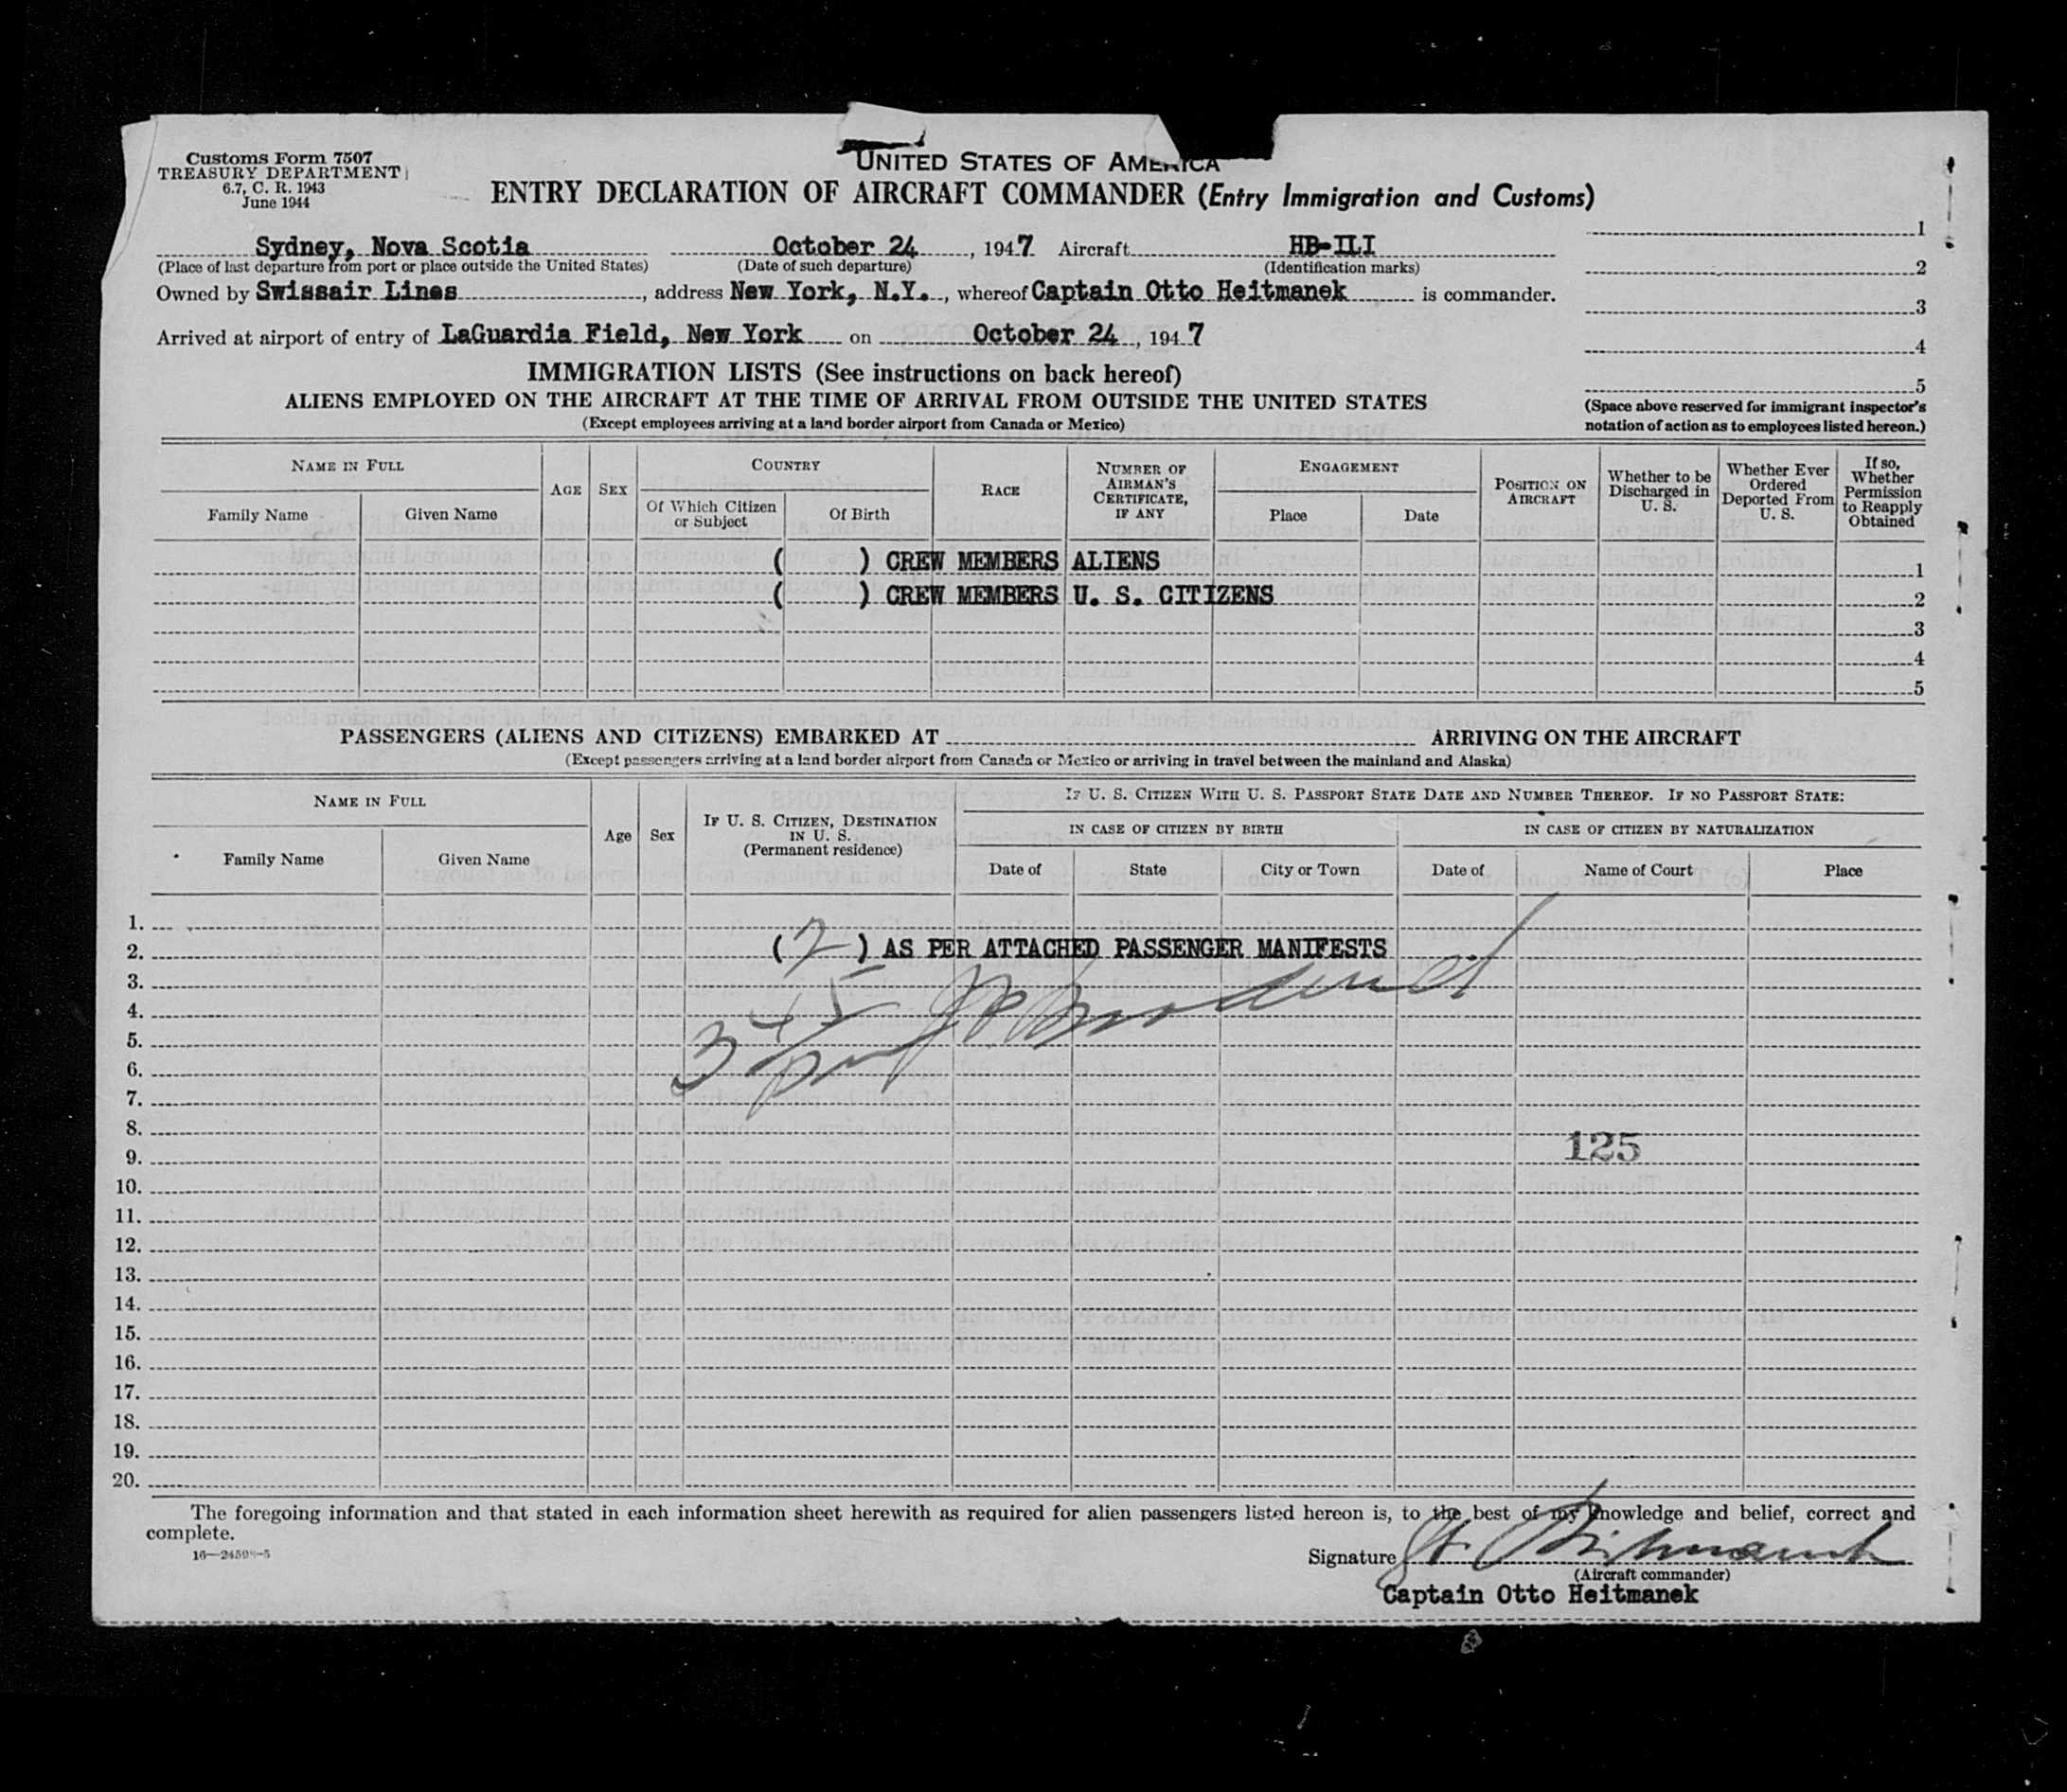 Customs Form 7507
TREASURY DEPARTMENT
6.7, C. R. 1943
June 1944
UNITED STATES OF AMERICA
ENTRY DECLARATION OF AIRCRAFT COMMANDER (Entry Immigration and Customs)
Sydney, Nova Scotia October 24, 1947 Aircraft HB-ILI
(Place of last departure from port or place outside the United States) (Date of such departure) (Identification marks)
Owned by Swissair Lines, address New York, N.Y., whereof Captain Otto Heitmanek is commander.
Arrived at airport of entry of LaGuardia Field, New York on October 24, 1947
1
2
3
4
5
(Space above reserved for immigrant inspector's
notation of action as to employees listed hereon.)
IMMIGRATION LISTS (See instructions on back hereof)
ALIENS EMPLOYED ON THE AIRCRAFT AT THE TIME OF ARRIVAL FROM OUTSIDE THE UNITED STATES
(Except employees arriving at a land border airport from Canada or Mexico)
NAME IN FULL
Family Name
Given Name
AGE
SEX
COUNTRY
Of Which Citizen
or Subject
Of Birth
RACE
NUMBER OF
AIRMAN'S
CERTIFICATE,
IF ANY
ENGAGEMENT
Place
Date
POSITION ON
AIRCRAFT
Whether to be
Discharged in
U. S.
Whether Ever
Ordered
Deported From
U. S.
If so,
Whether
Permission
to Reapply
Obtained
( ) CREW MEMBERS ALIENS 1
( ) CREW MEMBERS U. S. CITIZENS 2
3
4
5
PASSENGERS (ALIENS AND CITIZENS) EMBARKED AT ARRIVING ON THE AIRCRAFT
(Except passengers arriving at a land border airport from Canada or Mexico or arriving in travel between the mainland and Alaska)
NAME IN FULL
Family Name
Given Name
Age
Sex
IF U. S. CITIZEN, DESTINATION
IN U. S.
(Permanent residence)
IF U. S. CITIZEN WITH U. S. PASSPORT STATE DATE AND NUMBER THEREOF. IF NO PASSPORT STATE:
IN CASE OF CITIZEN BY BIRTH
Date of
State
City or Town
IN CASE OF CITIZEN BY NATURALIZATION
Date of
Name of Court
Place
1.
2. (2) AS PER ATTACHED PASSENGER MANIFESTS
3.
4.
5.
6.
7.
8.
125
9.
10.
11.
12.
13.
14.
15.
16.
17.
18.
19.
20.
The foregoing information and that stated in each information sheet herewith as required for alien passengers listed hereon is, to the best of my knowledge and belief, correct and
complete.
Signature
(Aircraft commander)
Captain Otto Heitmanek